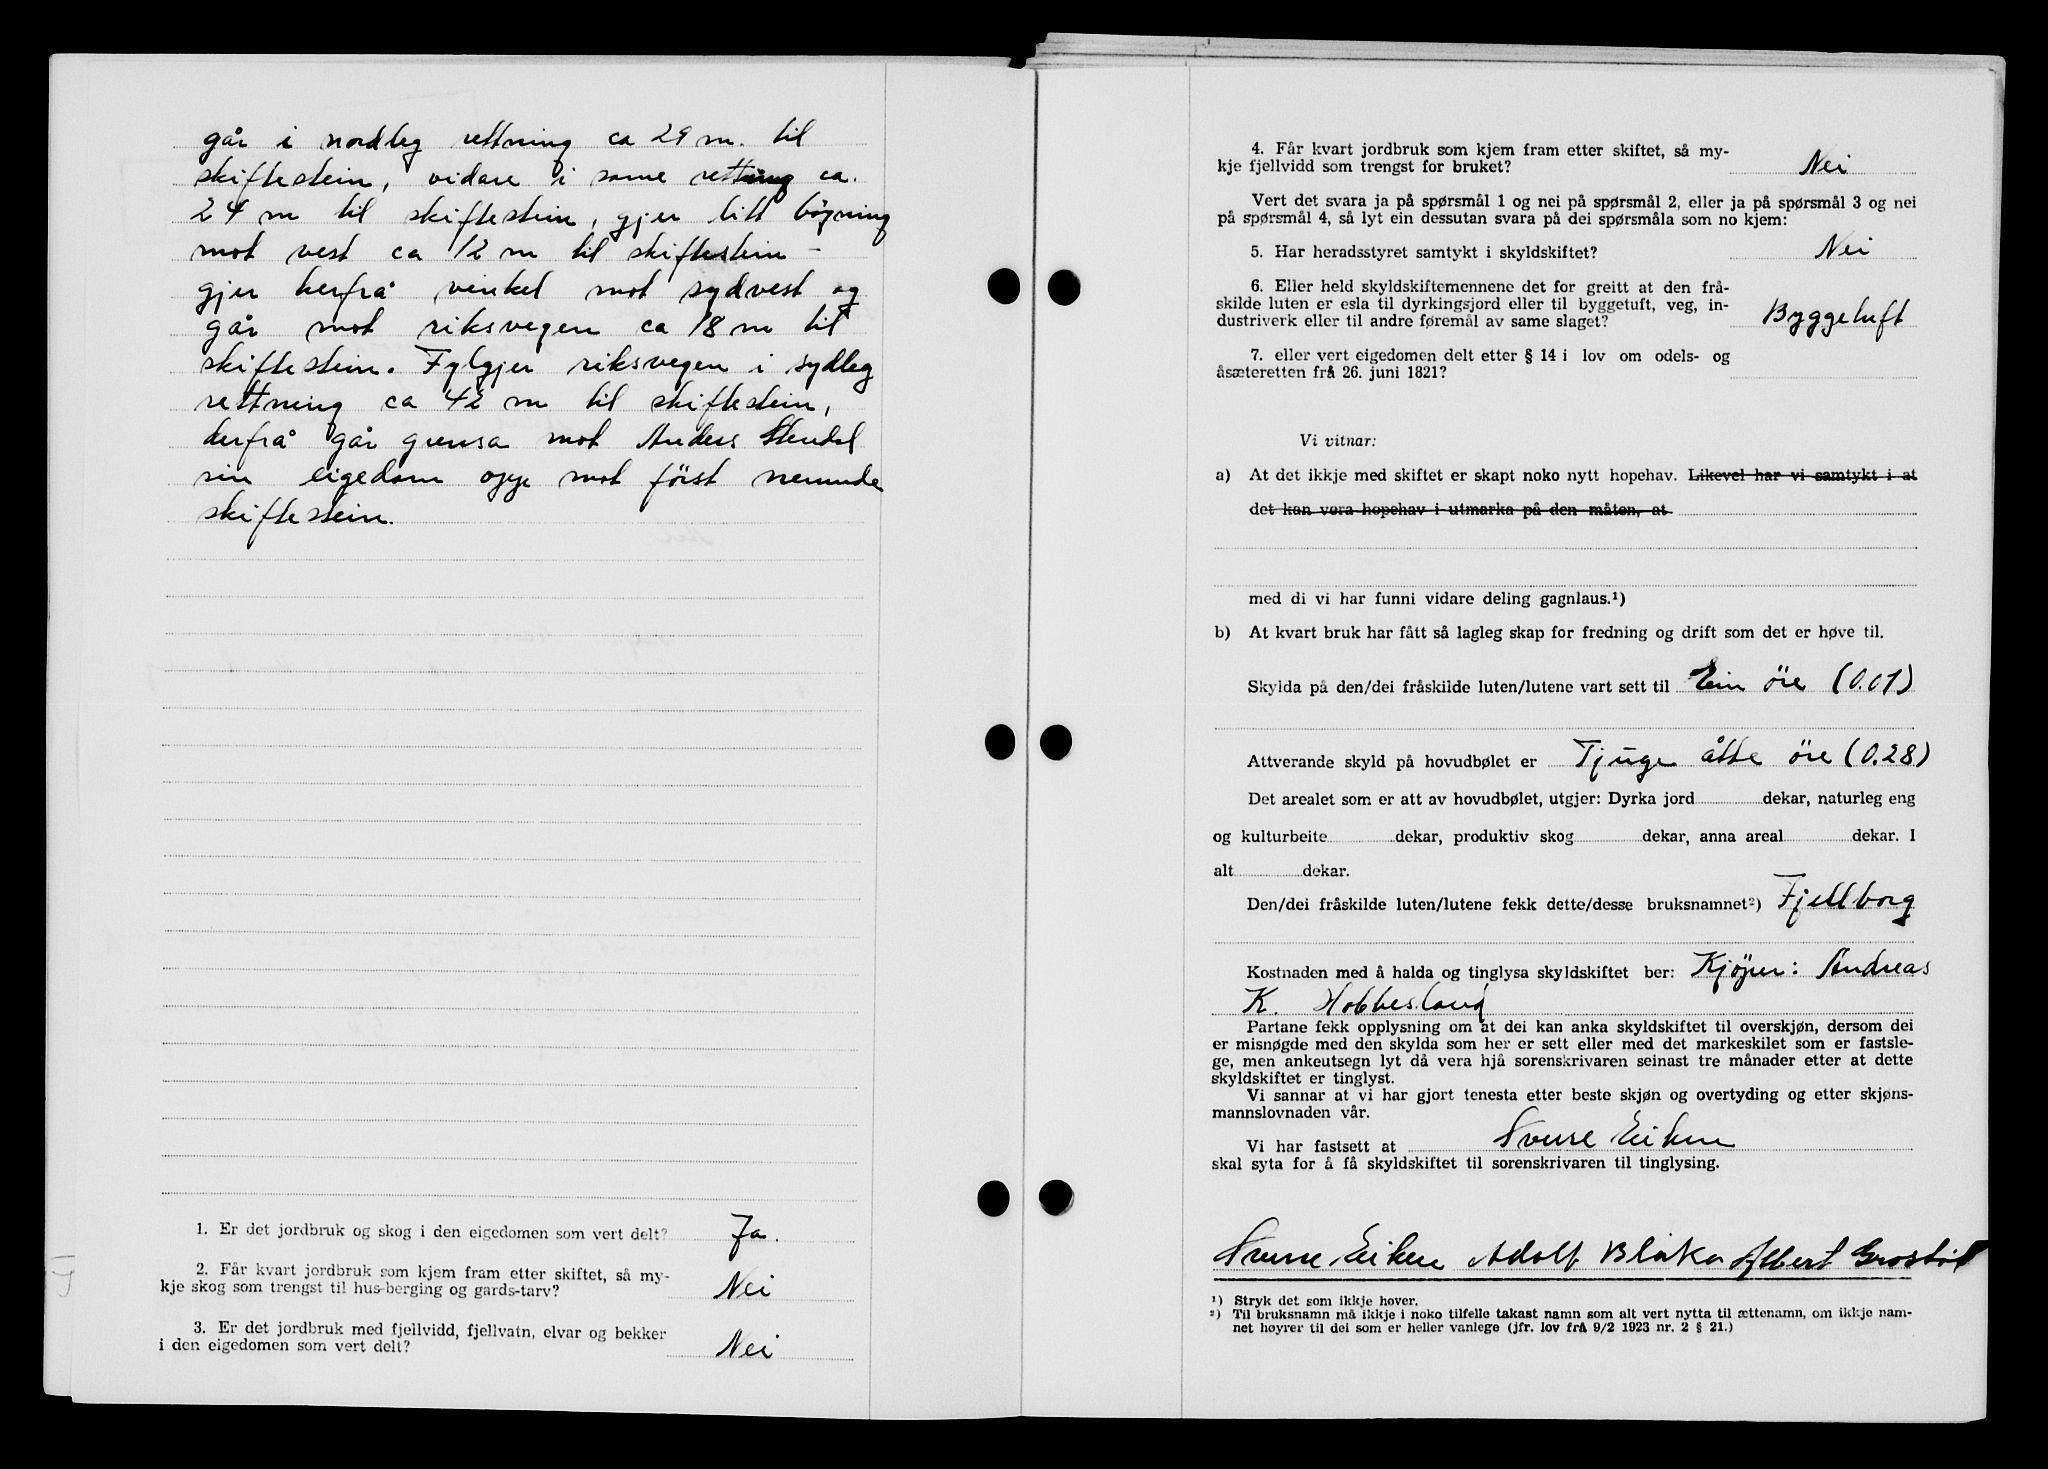 går i nordleg rettning ca 29 m. til
skiftestein, vidare i same rettning ca.
24 m til skiftestein, gjer litt bögning
mot vest ca 12 m til skiftestein –
gjer herfrå vinkel mot sydvest og
går mot riksvegen ca 18 m til
skiftestein. Fylgjer riksvegen i sydleg
rettning ca 42 m til skiftestein,
derfrå går grensa mot Anders
sin eigedom opp mot först nemnde
skiftestein.
1. Er det jordbruk og skog i den eigedomen som vert delt? Ja.
2. Får kvart jordbruk som kjem fram etter skiftet, så my-
kje skog som trengst til hus-berging og gards-tarv? Nei
3. Er det jordbruk med fjellvidd, fjellvatn, elvar og bekker
i den eigedomen som vert delt? Nei
4. Får kvart jordbruk som kjem fram etter skiftet, så my-
kje fjellvidd som trengst for bruket? Nei
Vert det svara ja på spørsmål 1 og nei på spørsmål 2, eller ja på spørsmål 3 og nei
på spørsmål 4, så lyt ein dessutan svara på dei spørsmåla som no kjem:
5. Har heradsstyret samtykt i skyldskiftet? Nei
6. Eller held skyldskiftemennene det for greitt at den frå-
skilde luten er esla til dyrkingsjord eller til byggetuft, veg, in-
dustriverk eller til andre føremål av same slaget? Byggetuft
7. eller vert eigedomen delt etter § 14 i lov om odels- og
åsæteretten frå 26. juni 1821?
Vi vitnar:
a) At det ikkje med skiftet er skapt noko nytt hopehav. Likevel har vi samtykt i at
det kan vera hopehav i utmarka på den måten, at
med di vi har funni vidare deling gagnlaus.¹)
b) At kvart bruk har fått så lagleg skap for fredning og drift som det er høve til.
Skylda på den/dei fråskilde luten/lutene vart sett til Ein öre (0.01)
Attverande skyld på hovudbølet er Tjuge åtte öre (0.28)
Det arealet som er att av hovudbølet, utgjer: Dyrka jord dekar, naturleg eng
og kulturbeite dekar, produktiv skog dekar, anna areal dekar. I
alt dekar.
Den/dei fråskilde luten/lutene fekk dette/desse bruksnamnet²) Fjellborg
Kostnaden med å halda og tinglysa skyldskiftet ber: Kjöper: Andreas
K. Hobbesland
Partane fekk opplysning om at dei kan anka skyldskiftet til overskjøn, dersom dei
er misnøgde med den skylda som her er sett eller med det markeskilet som er fastsle-
ge, men ankeutsegn lyt då vera hjå sorenskrivaren seinast tre månader etter at dette
skyldskiftet er tinglyst.
Vi sannar at vi har gjort tenesta etter beste skjøn og overtyding og etter skjøns-
mannslovnaden vår.
Vi har fastsett at Sverre Eiken
skal syta for å få skyldskiftet til sorenskrivaren til tinglysing.
Sverre Eiken Adolf Blåka Albert Grostöl
¹) Stryk det som ikkje høver.
²) Til bruksnamn må ikkje i noko tilfelle takast namn som alt vert nytta til ættenamn, om ikkje nam-
net høyrer til dei som er heller vanlege (jfr. lov frå 9/2 1923 nr. 2 § 21.)